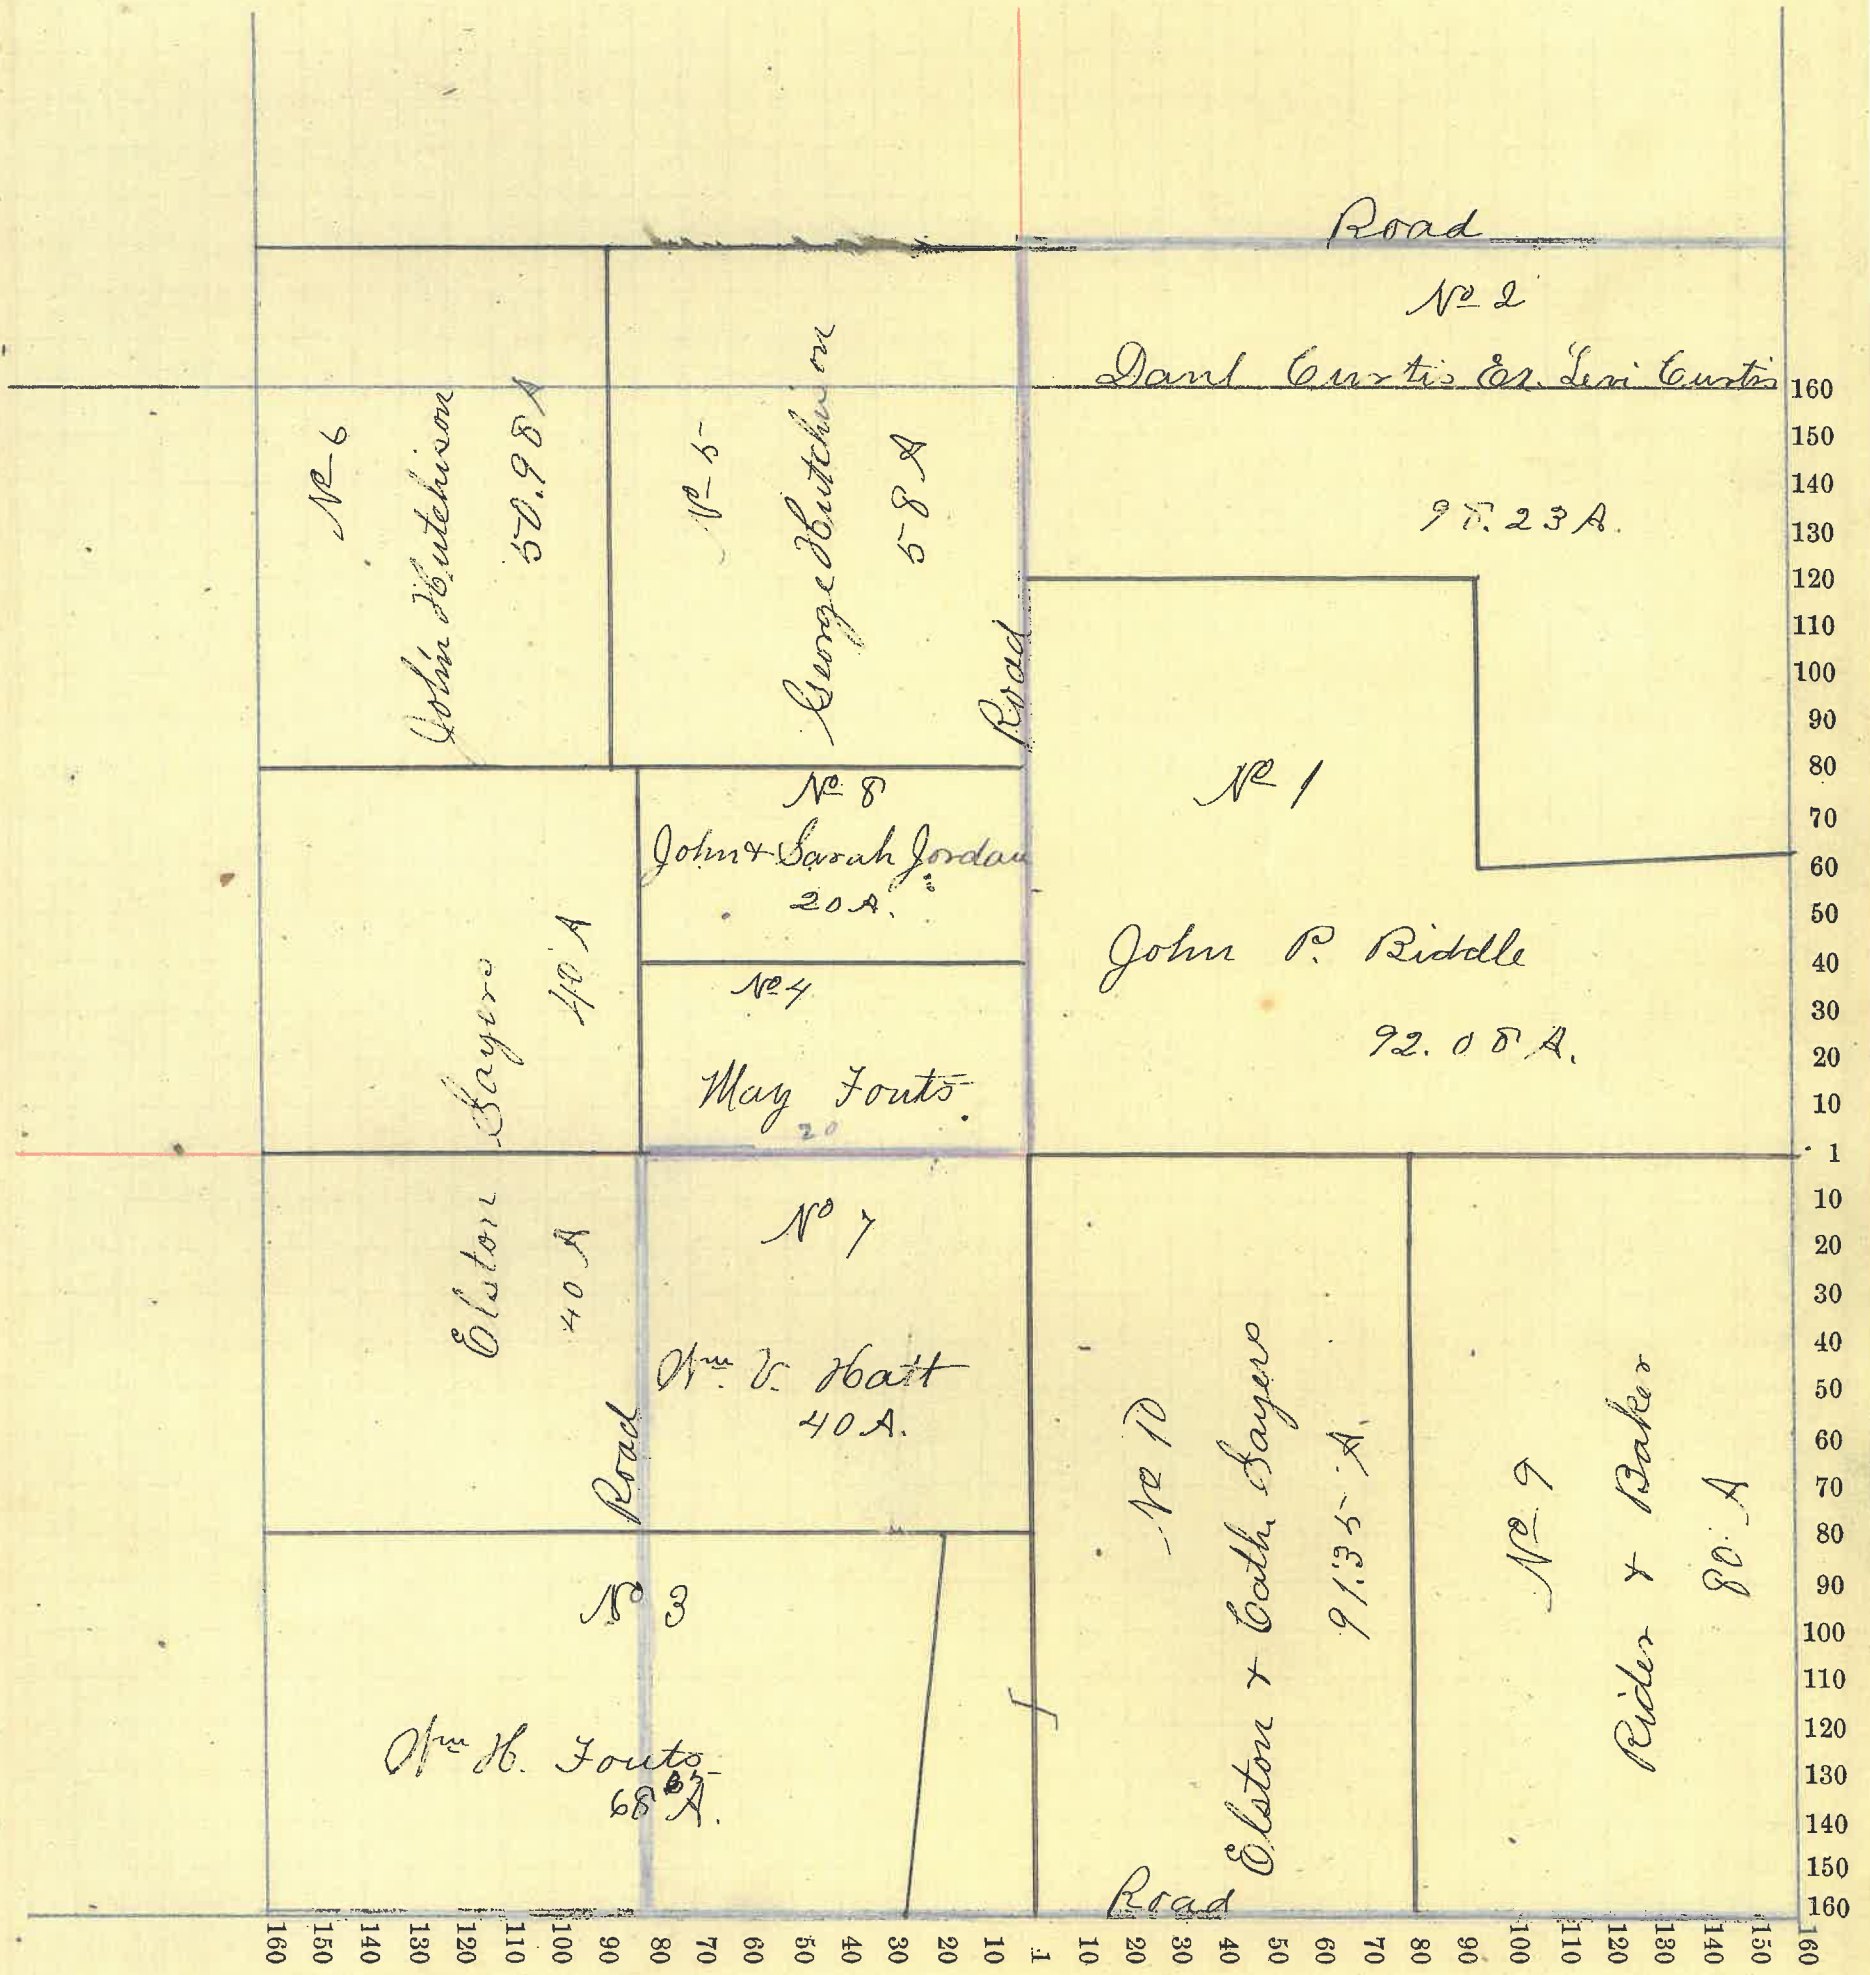 Road
Nº 2
Danl Curtis Ex. Levi Curtis
98.23 A.
Nº 6
John Hutchison
50.98 A
Nº 5
George Hutchison
58 A
Road
Nº 1
John P. Biddle
92.08 A.
Nº 8
John & Sarah Jordan
20 A.
Nº 4
May Fouts
20
Elston Sayers
40 A
40 A
Road
Nº 7
Wm. V. Hatt
40 A.
Nº 3
Wm H. Fouts
A.
Nº 10
Elston & Cath. Sayers
91.35 A.
Road
Nº 9
Rider & Baker
80 A
160
150
140
130
120
110
100
90
80
70
60
50
40
30
20
10
1
10
20
30
40
50
60
70
80
90
100
110
120
130
140
150
160
160 150 140 130 120 110 100 90 80 70 60 50 40 30 20 10 1 10 20 30 40 50 60 70 80 90 100 110 120 130 140 150 160